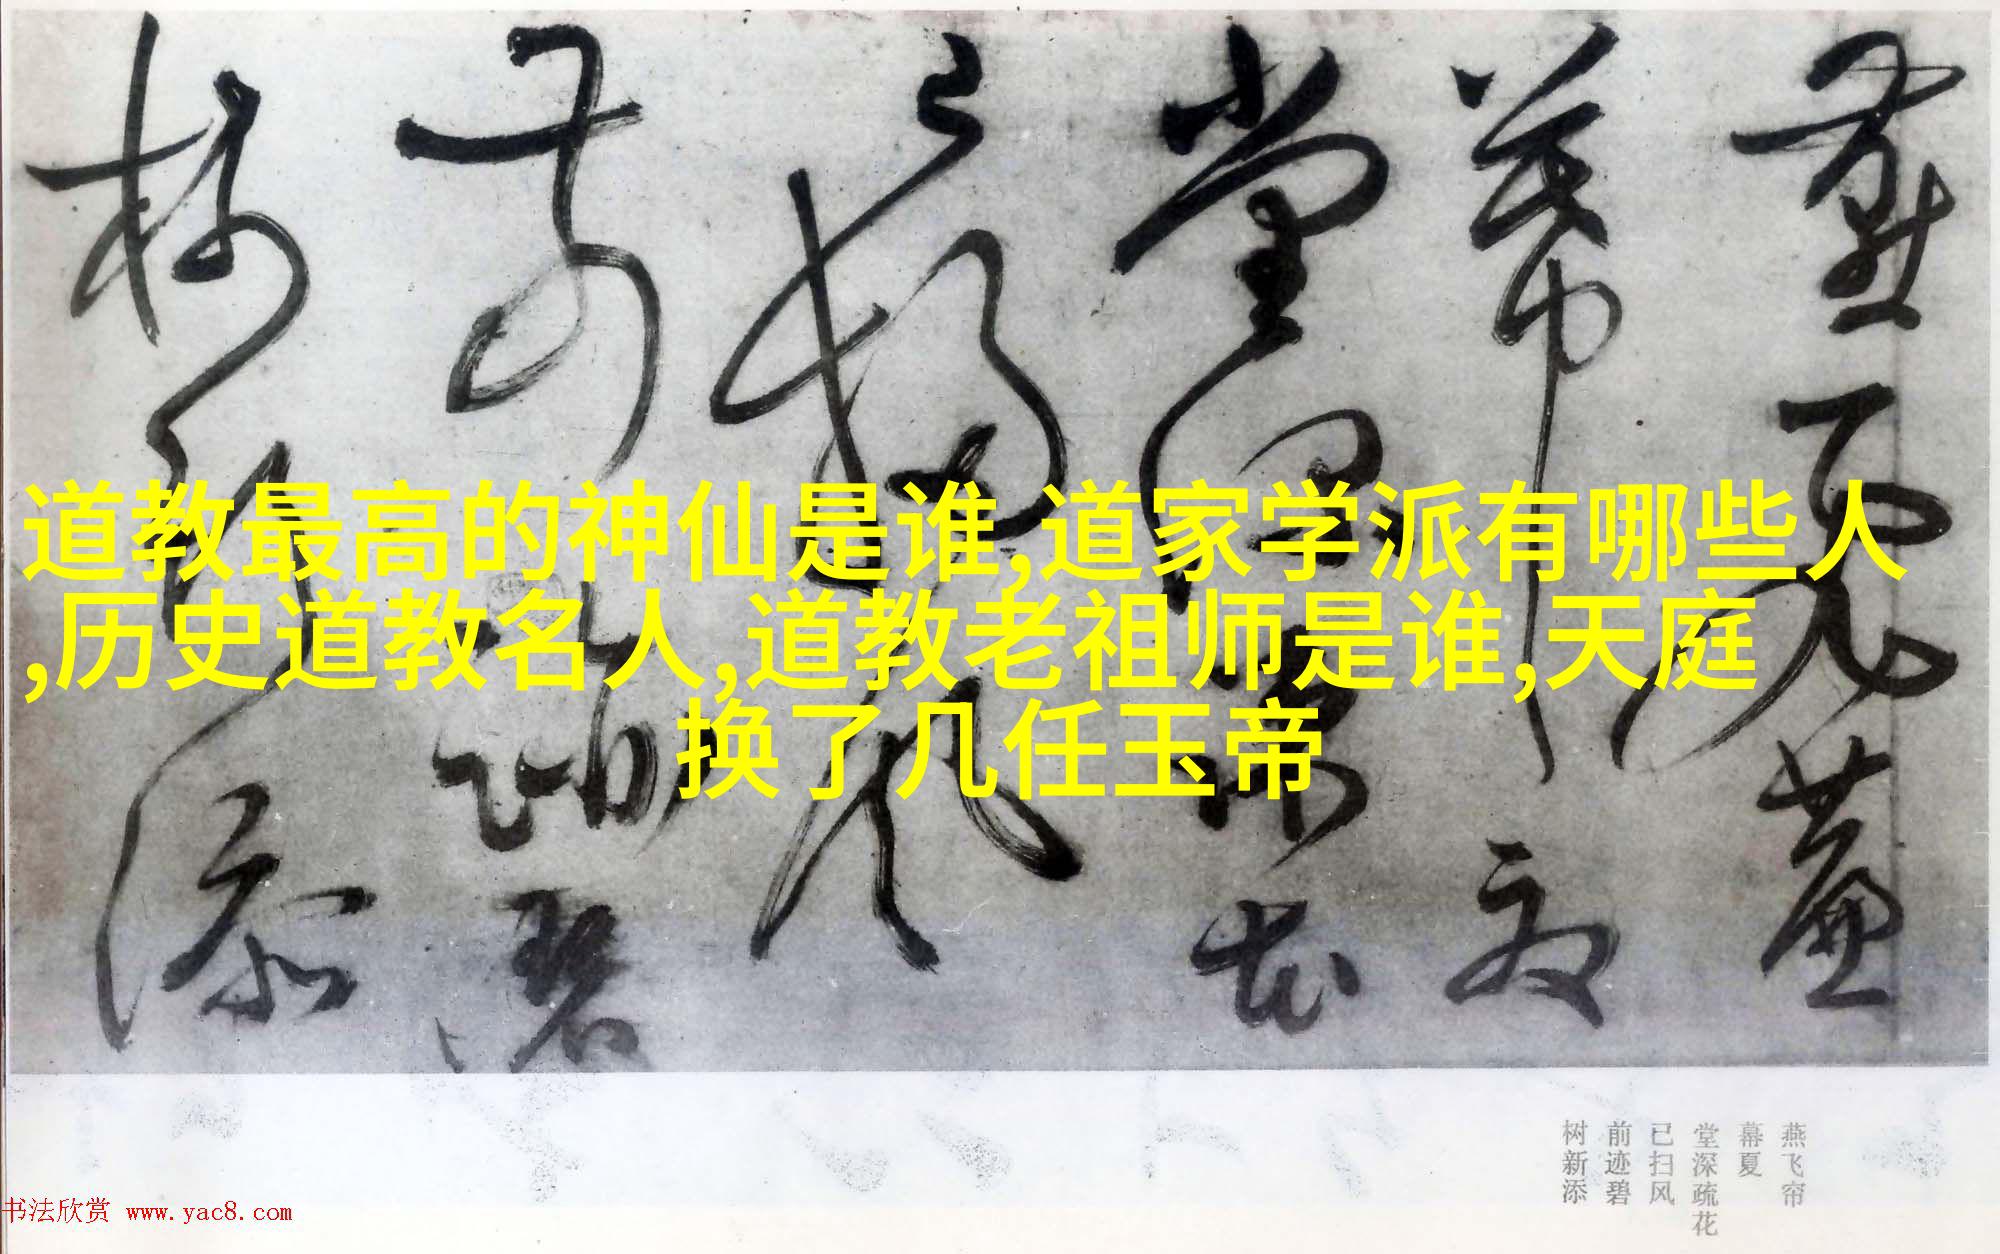 道教最高的神仙是谁,道家学派有哪些人
,历史道教名人,道教老祖师是谁,天庭
换了几任玉帝
燕飞帘
幕夏
堂深疏花
已扫风
前迹碧
树新添
书法欣赏 www.yac8.com